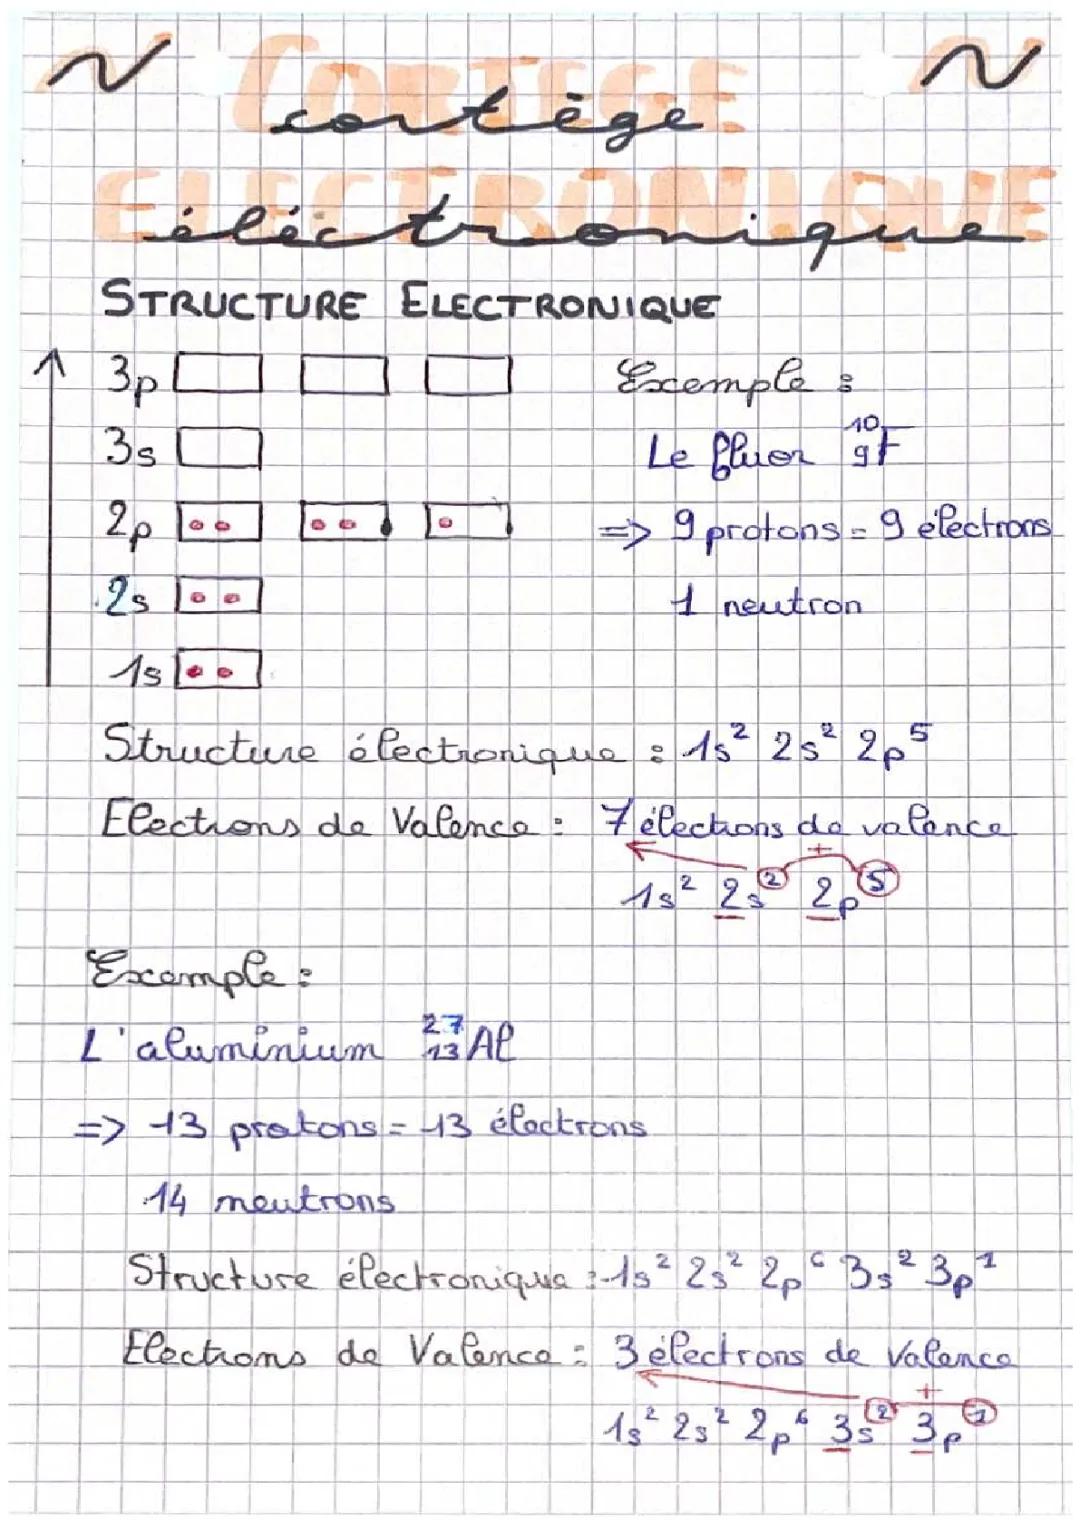 CORTEGE
cortège
ELECTRONIQUE
éléctronique
STRUCTURE ELECTRONIQUE
3p
Exemple :
3s
Le fluor ¹⁰₉F
2p
=> 9 protons = 9 électrons
2s
1 neutron
1s
Structure électronique : 1s² 2s² 2p⁵
Electrons de Valence : 7 électrons de valence
+
1s² 2s² 2p⁵
Exemple :
L'aluminium ²⁷₁₃Al
=> 13 protons = 13 électrons
14 neutrons
Structure électronique : 1s² 2s² 2p⁶ 3s² 3p¹
Electrons de Valence : 3 électrons de valence
+
1s² 2s² 2p⁶ 3s² 3p¹